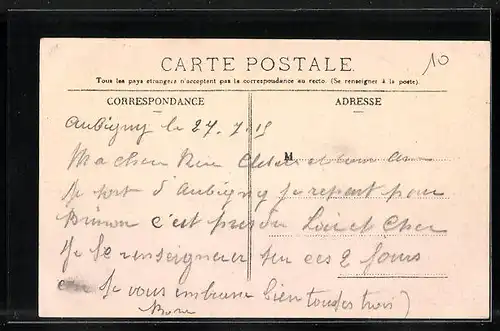 10
CARTE POSTALE
Tous les pays étrangers n'acceptent pas la correspondance au recto. (Se renseigner à la poste).
CORRESPONDANCE
ADRESSE
Aubigny le 27. 7. 15
Ma cher
M
Je sort d'Aubigny je repart pour
c'est près du Loir et Cher
Je Se renseignerer sur ces 2 jours
Je vous embrasse bien toutes trois